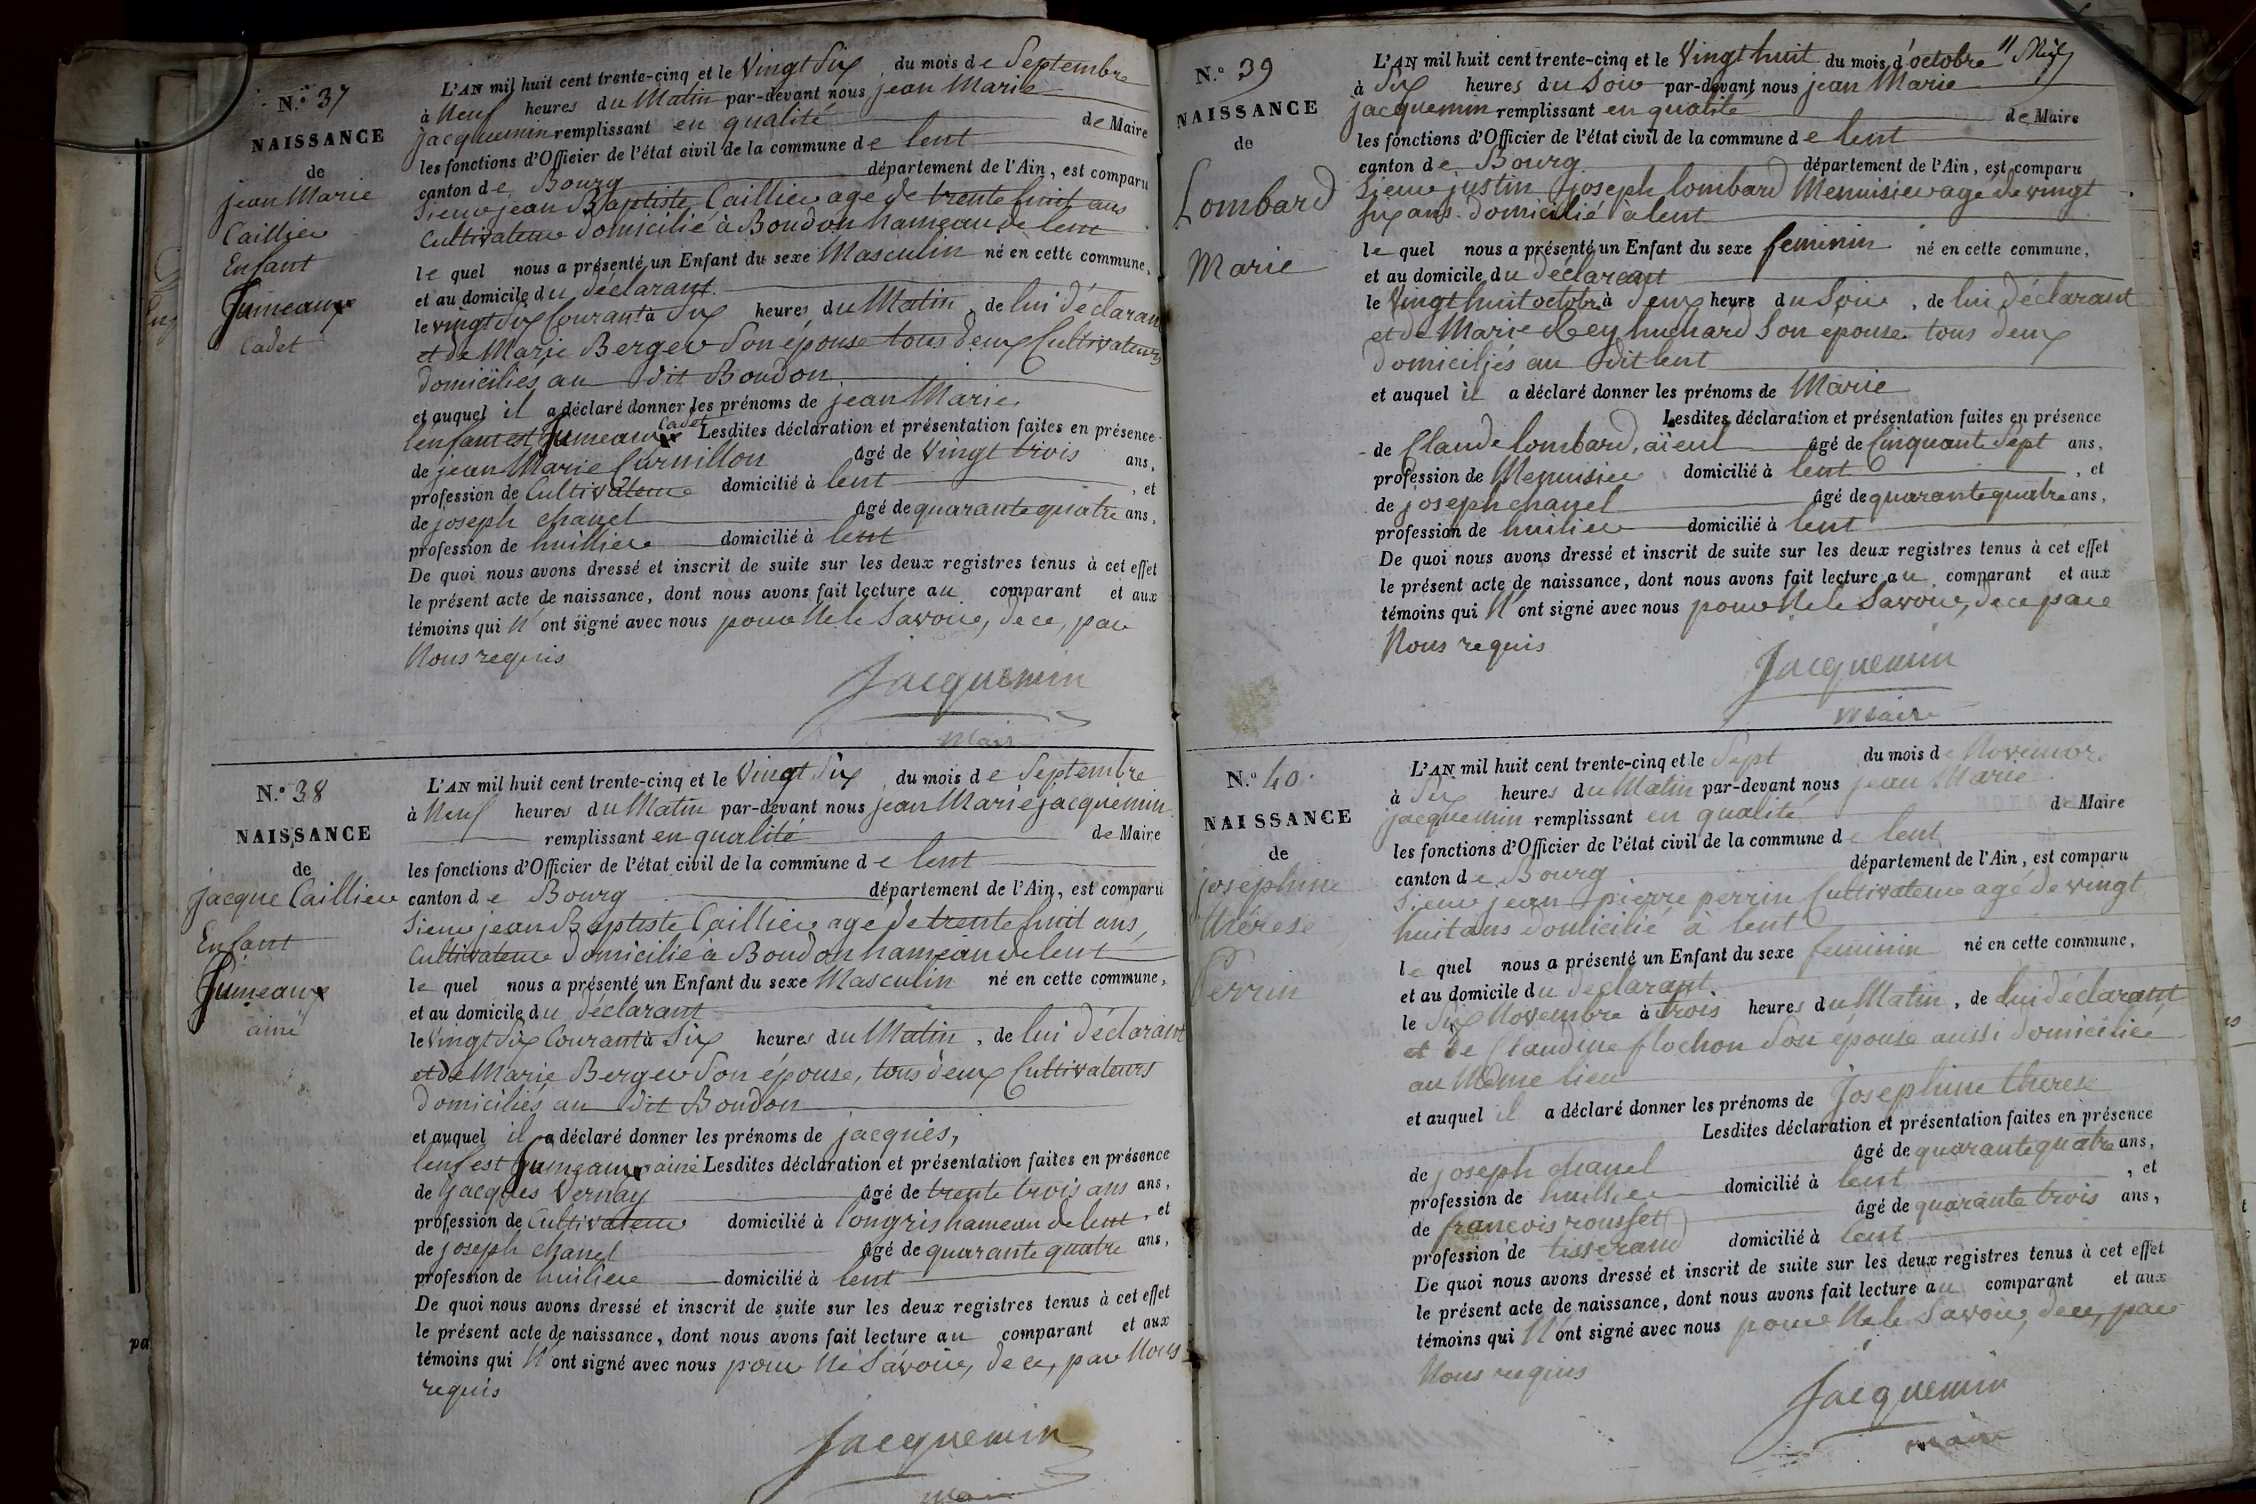 N.° 37
NAISSANCE
de
jean Marie
Caillier
Enfant
Jumeaux
Cadet
L'AN mil huit cent trente-cinq et le Vingt Six du mois de Septembre
à Neuf heures du Matin par-devant nous jean Marie
jacquemin remplissant en qualité de Maire
les fonctions d'Officier de l'état civil de la commune de lent
canton de Bourg département de l'Ain, est comparu
Sieur jean Baptiste Caillier age de trente huit ans
Cultivateur domicilié à Boudon hameau de lent
le quel nous a présenté un Enfant du sexe Masculin né en cette commune,
et au domicile du déclarant
le vingt Six Courant à Six heures du Matin, de lui déclarant
et de Marie Berger Son épouse tous deux Cultivateurs
domiciliés au dit Boudon
et auquel il a déclaré donner les prénoms de jean Marie.
lenfant est Jumeaux Cadet Lesdites déclaration et présentation faites en présence
de jean Marie âgé de Vingt trois ans,
profession de Cultivateur domicilié à lent , et
de joseph chanel âgé de quarante quatre ans,
profession de huillier domicilié à lent
De quoi nous avons dressé et inscrit de suite sur les deux registres tenus à cet effet
le présent acte de naissance, dont nous avons fait lecture au comparant et aux
témoins qui N'ont signé avec nous pour Ne le Savoir, de ce, par
Nous requis
Jacquemin
Mair
N.° 38
NAISSANCE
de
jacque Caillier
Enfant
Jumeaux
ainé
L'AN mil huit cent trente-cinq et le Vingt Six du mois de Septembre
à Neuf heures du Matin par-devant nous jean Marie jacquemin
remplissant en qualité de Maire
les fonctions d'Officier de l'état civil de la commune de lent
canton de Bourg département de l'Ain, est comparu
Sieur jean Baptiste Caillier age de trente huit ans,
Cultivateur domicilié à Boudon hameau de lent
le quel nous a présenté un Enfant du sexe Masculin né en cette commune,
et au domicile du déclarant
le Vingt Six Courant à Six heures du Matin, de lui déclarant
et de Marie Berger Son épouse, tous deux Cultivateurs
domiciliés au dit Boudon
et auquel il a déclaré donner les prénoms de jacques,
lenf est Jumeaux ainé Lesdites déclaration et présentation faites en présence
de jacques Vernay âgé de trente trois ans ans,
profession de Cultivateur domicilié à longris hameau de lent, et
de joseph chanel âgé de quarante quatre ans,
profession de huilier domicilié à lent
De quoi nous avons dressé et inscrit de suite sur les deux registres tenus à cet effet
le présent acte de naissance, dont nous avons fait lecture au comparant et aux
témoins qui N'ont signé avec nous pour Ne Savoir, de ce, par Nous
requis
Jacquemin
N.° 39
NAISSANCE
de
Lombard
Marie
L'AN mil huit cent trente-cinq et le Vingt huit du mois d'octobre
à Six heures du Soir par-devant nous jean Marie
jacquemin remplissant en qualité de Maire
les fonctions d'Officier de l'état civil de la commune de lent
canton de Bourg département de l'Ain, est comparu
Sieur justin joseph lombard Menuisier age de vingt
Six ans domicilié à lent
le quel nous a présenté un Enfant du sexe feminin né en cette commune,
et au domicile du déclarant
le Vingt huit octobre à deux heure du Soir, de lui déclarant
et de Marie Rey huchard Son epouse tous deux
domiciliés au dit lent
et auquel il a déclaré donner les prénoms de Marie
Lesdites déclaration et présentation faites en présence
de Claude lombard, aïeul âgé de Cinquante Sept ans,
profession de Menuisier domicilié à lent , et
de joseph chanel âgé de quarante quatre ans,
profession de huilier domicilié à lent
De quoi nous avons dressé et inscrit de suite sur les deux registres tenus à cet effet
le présent acte de naissance, dont nous avons fait lecture au comparant et aux
témoins qui N'ont signé avec nous pour Ne le Savoir, de ce par
Nous requis
Jacquemin
Maire
N.° 40.
NAISSANCE
de
josephine
thérese
Perrin
L'AN mil huit cent trente-cinq et le Sept du mois de Novembre
à Six heures du Matin par-devant nous jean Marie
jacquemin remplissant en qualité de Maire
les fonctions d'Officier de l'état civil de la commune de lent
canton de Bourg département de l'Ain, est comparu
Sieur jean pierre perrin Cultivateur agé de vingt
huit ans domicilié à lent
le quel nous a présenté un Enfant du sexe feminin né en cette commune,
et au domicile du déclarant
le Six Novembre à trois heures du Matin, de lui déclarant
et de Claudine flochon Son épouse aussi domiciliée
au Même lieu
et auquel il a déclaré donner les prénoms de Josephine therese
Lesdites déclaration et présentation faites en présence
de joseph chanel âgé de quarante quatre ans,
profession de huillier domicilié à lent , et
de françois rousset âgé de quarante trois ans,
profession de tisserand domicilié à lent
De quoi nous avons dressé et inscrit de suite sur les deux registres tenus à cet effet
le présent acte de naissance, dont nous avons fait lecture au comparant et aux
témoins qui N'ont signé avec nous pour Ne le Savoir, de ce, par
Nous requis
Jacquemin
maire